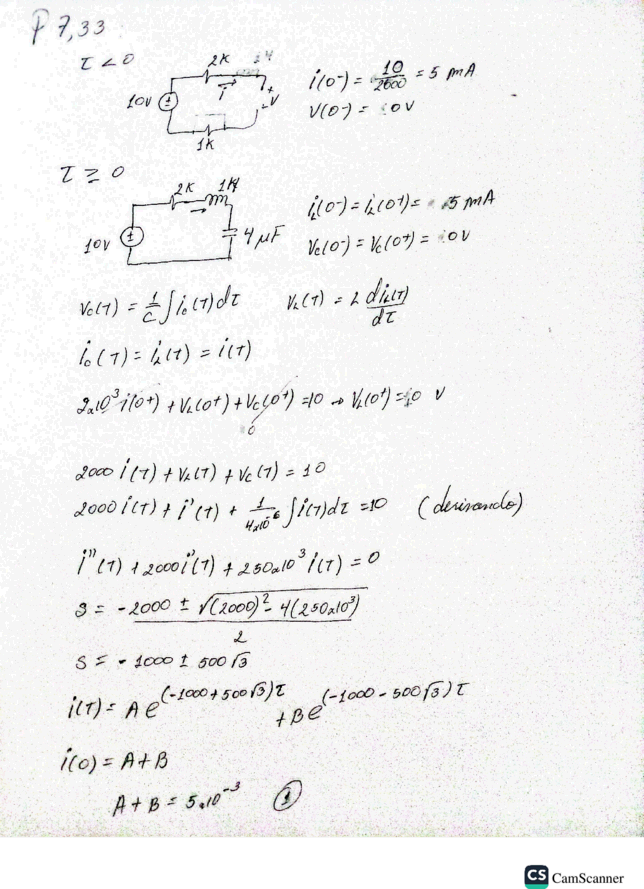 P 7,33
τ < 0
2K
10V
i
+
V
-
1K
i(0-) = 10/2000 = 5 mA
V(0-) = 0V
τ ≥ 0
2K 1H
10V
4 μF
iL(0-) = iL(0+) = 5 mA
Vc(0-) = Vc(0+) = 0V
Vc(τ) = 1/C ∫ic(τ)dτ VL(τ) = L diL(τ)/dτ
ic(τ) = iL(τ) = i(τ)
2x10³ i(0+) + VL(0+) + Vc(0+) = 10 → VL(0+) = 0 V
0
2000 i(τ) + VL(τ) + Vc(τ) = 10
2000 i(τ) + i'(τ) + 1/4x10⁻⁶ ∫i(τ)dτ = 10 (derivando)
i''(τ) + 2000 i'(τ) + 250x10³ i(τ) = 0
S = -2000 ± √((2000)² - 4(250x10³)) / 2
S = -1000 ± 500√3
i(τ) = A e^(-1000+500√3)τ + B e^(-1000-500√3)τ
i(0) = A+B
A+B = 5x10⁻³ ①
CS CamScanner